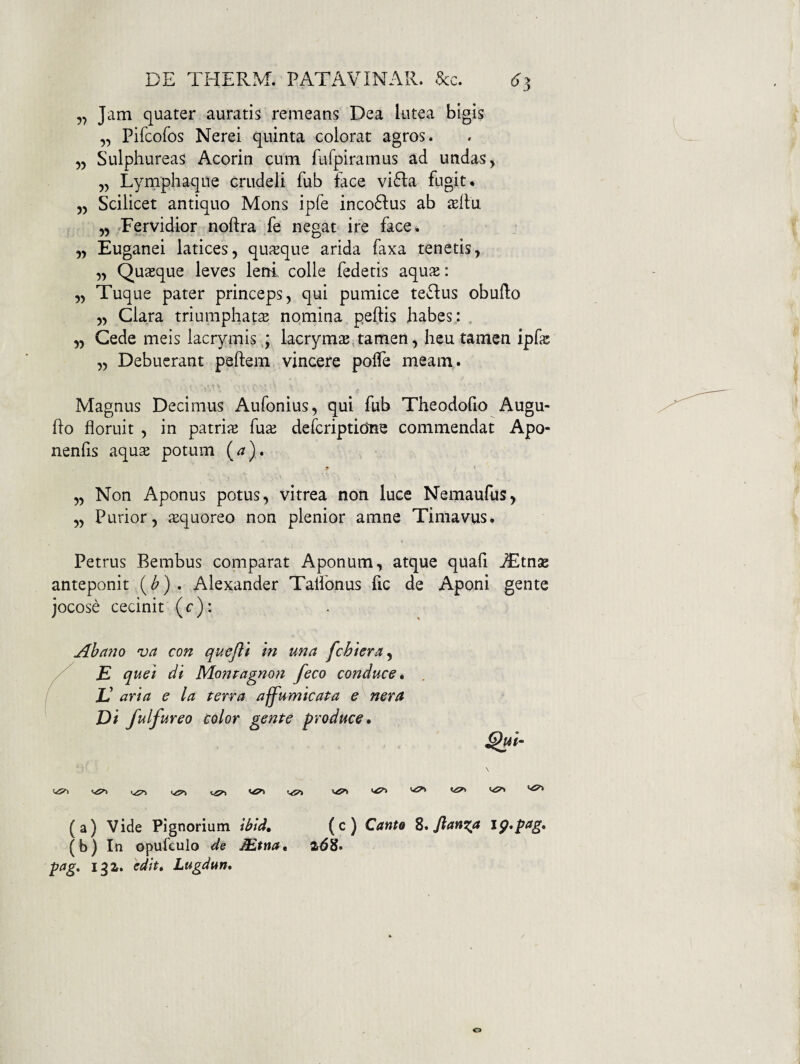 DE THERM. PATAVINAR. &c. 63
„ Jam quater auratis remeans Dea lutea bigis
„ Piſcoſos Nerei quinta colorat agros.
„ Sulphureas Acorin cum ſuſpiramus ad undas,
„ Lymphaque crudeli ſub face victa fugit.
„ Scilicet antiquo Mons ipſe incoctus ab æſtu
„ Fervidior noſtra ſe negat ire face.
„ Euganei latices, quæque arida ſaxa tenetis,
„ Quæque leves leni colle ſedetis aquæ:
„ Tuque pater princeps, qui pumice tectus obuſto
„ Clara triumphatæ nomina peſtis habes:
„ Cede meis lacrymis; lacrymæ tamen, heu tamen ipſæ
„ Debuerant peſtem vincere poſſe meam.
Magnus Decimus Auſonius, qui ſub Theodoſio Augu-
ſto floruit, in patriæ ſuæ deſcriptione commendat Apo-
nenſis aquæ potum (a).
„ Non Aponus potus, vitrea non luce Nemauſus,
„ Purior, æquoreo non plenior amne Timavus.
Petrus Bembus comparat Aponum, atque quaſi Ætnæ
anteponit (b). Alexander Taſſonus ſic de Aponi gente
jocosè cecinit (c):
Abano va con queſti in una ſchiera,
E quei di Montagnon ſeco conduce.
L' aria e la terra affumicata e nera
Di ſulfureo color gente produce.
Qui-
(a) Vide Pignorium ibid. (c) Canto 8. ſtanza 19. pag.
(b) In opuſculo de Ætna. 268.
pag. 132. edit. Lugdun.